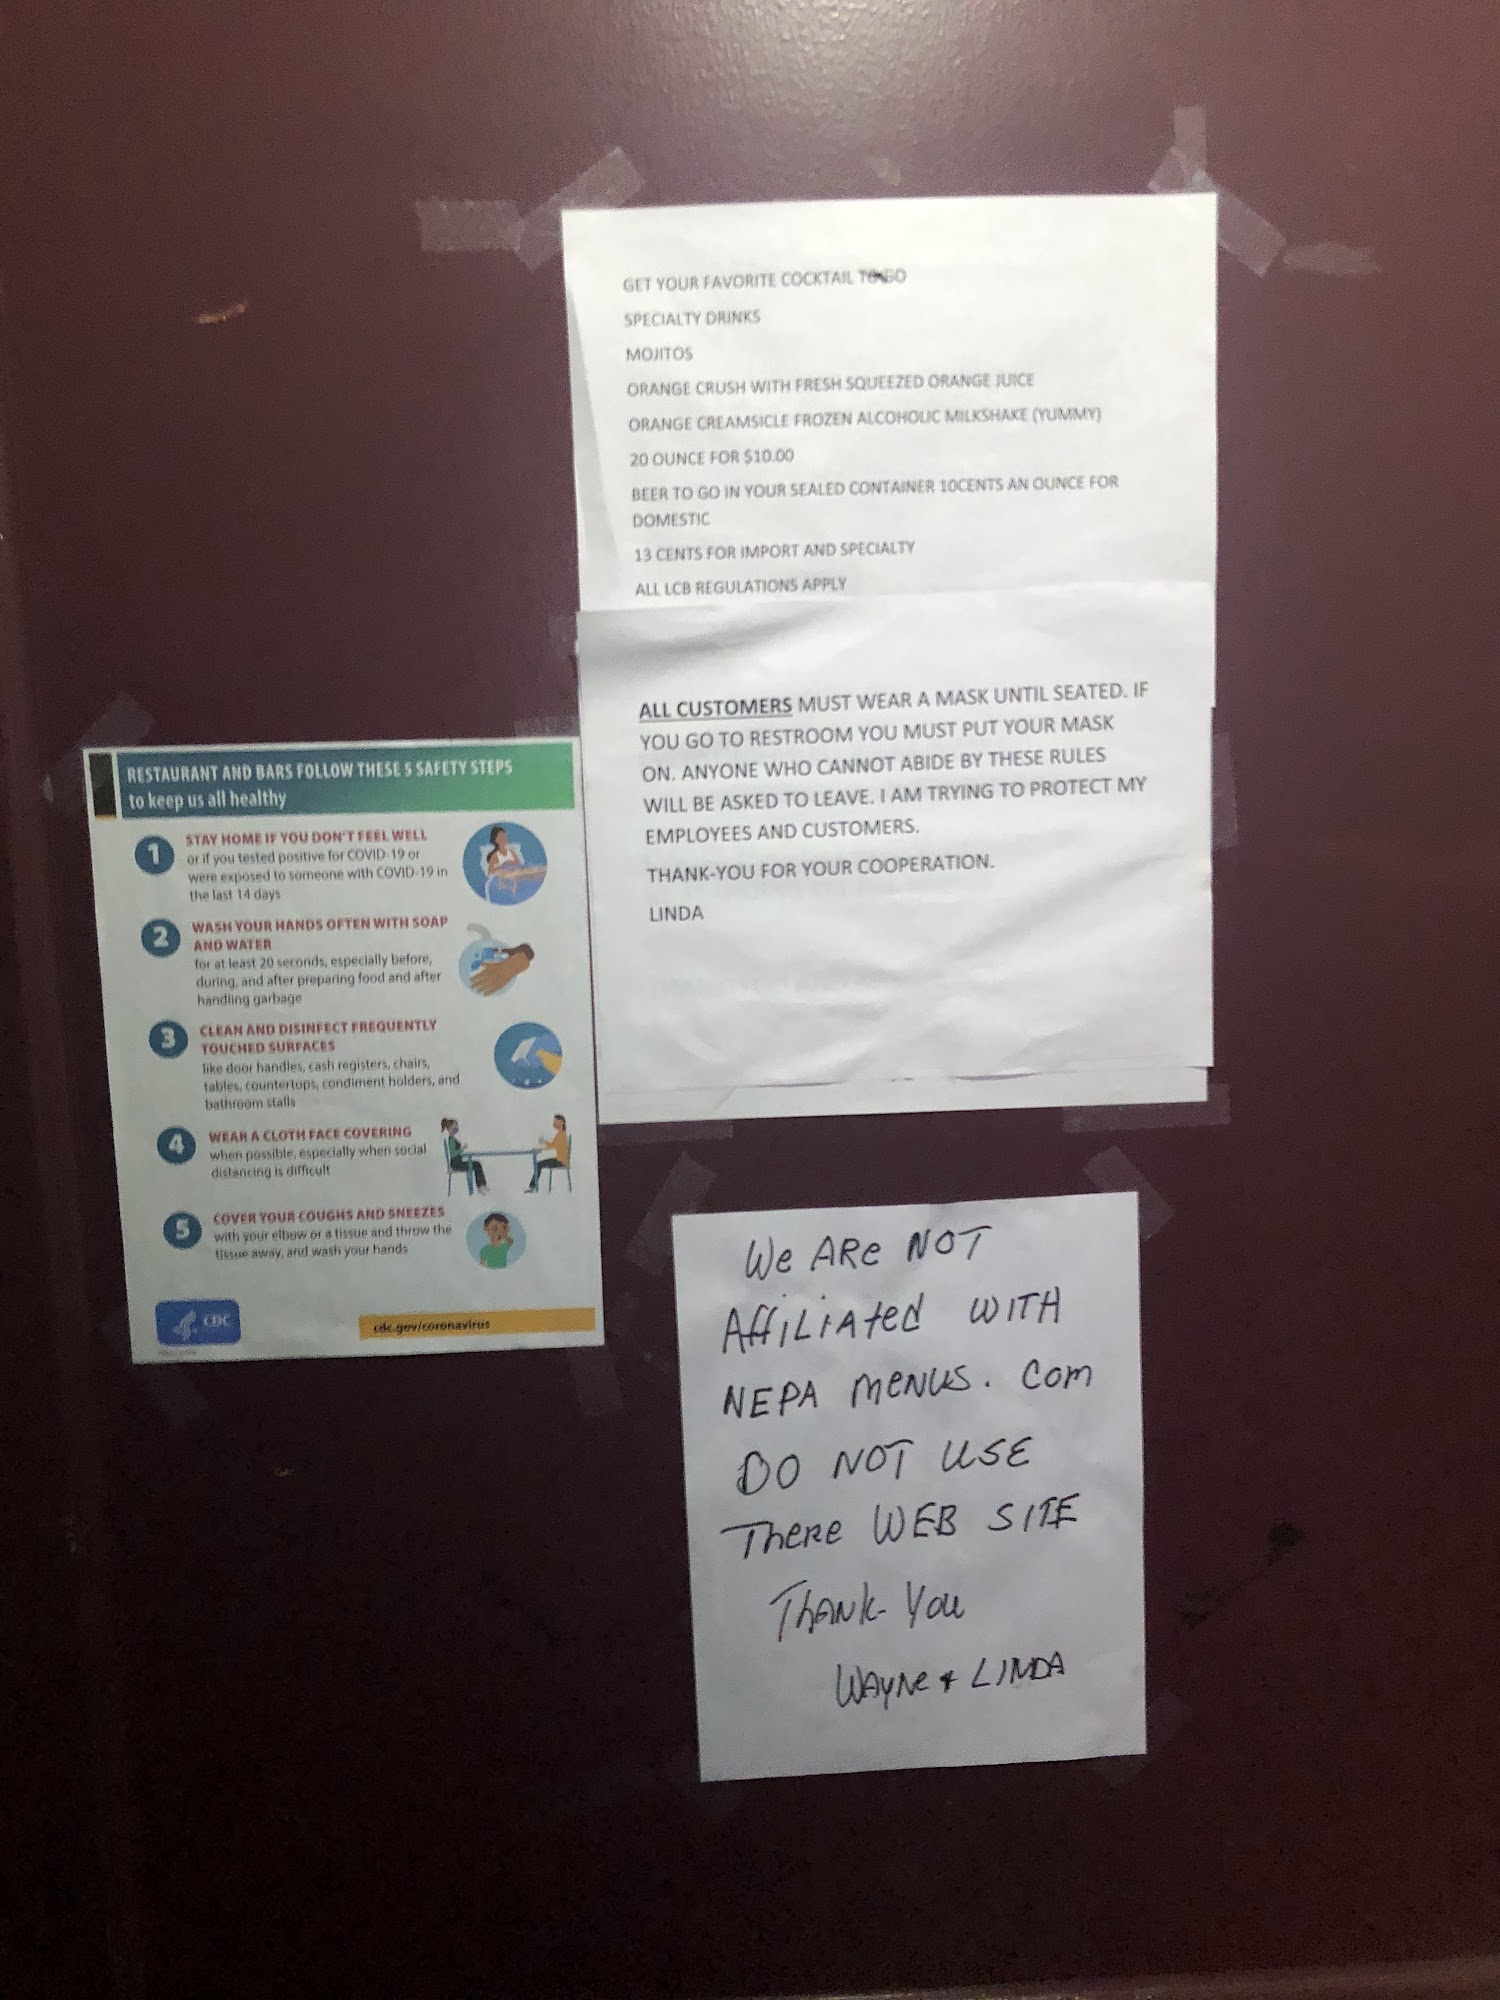 GET YOUR FAVORITE COCKTAIL TO GO
SPECIALTY DRINKS
MOJITOS
ORANGE CRUSH WITH FRESH SQUEEZED ORANGE JUICE
ORANGE CREAMSICLE FROZEN ALCOHOLIC MILKSHAKE (YUMMY)
20 OUNCE FOR $10.00
BEER TO GO IN YOUR SEALED CONTAINER 10CENTS AN OUNCE FOR
DOMESTIC
13 CENTS FOR IMPORT AND SPECIALTY
ALL LCB REGULATIONS APPLY
ALL CUSTOMERS MUST WEAR A MASK UNTIL SEATED. IF
YOU GO TO RESTROOM YOU MUST PUT YOUR MASK
ON. ANYONE WHO CANNOT ABIDE BY THESE RULES
WILL BE ASKED TO LEAVE. I AM TRYING TO PROTECT MY
EMPLOYEES AND CUSTOMERS.
THANK-YOU FOR YOUR COOPERATION.
LINDA
RESTAURANT AND BARS FOLLOW THESE 5 SAFETY STEPS
to keep us all healthy
1 STAY HOME IF YOU DON'T FEEL WELL
or if you tested positive for COVID-19 or
were exposed to someone with COVID-19 in
the last 14 days
2 WASH YOUR HANDS OFTEN WITH SOAP
AND WATER
for at least 20 seconds, especially before,
during, and after preparing food and after
handling garbage
3 CLEAN AND DISINFECT FREQUENTLY
TOUCHED SURFACES
like door handles, cash registers, chairs,
tables, countertops, condiment holders, and
bathroom stalls
4 WEAR A CLOTH FACE COVERING
when possible, especially when social
distancing is difficult
5 COVER YOUR COUGHS AND SNEEZES
with your elbow or a tissue and throw the
tissue away, and wash your hands
CDC
cdc.gov/coronavirus
We ARe NOT
AffiLiAted WITH
NEPA MENUS. Com
DO NOT USE
TheRe WEB SITE
ThANK-You
WAyNe + LINDA